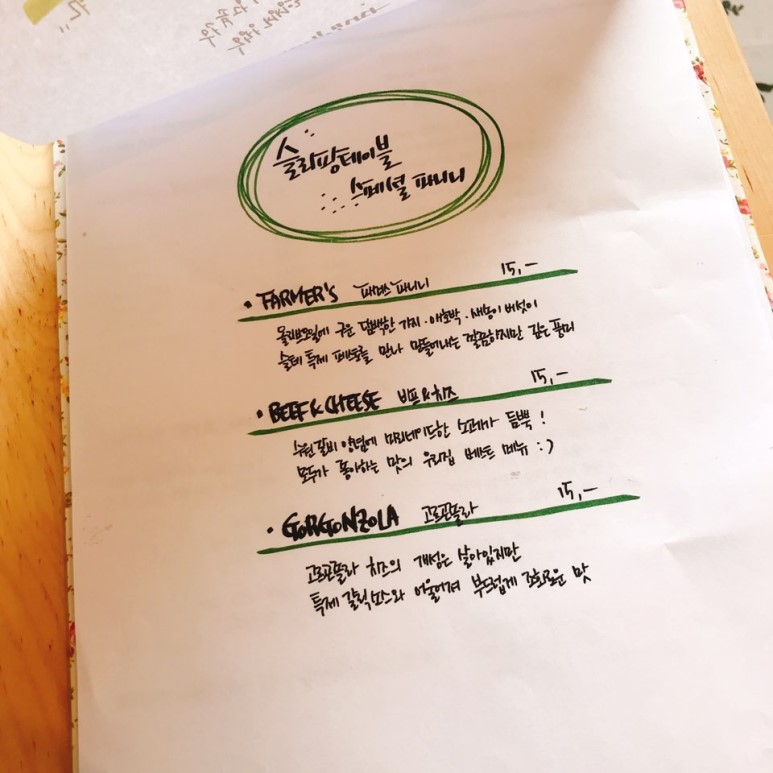 슬리핑테이블
스페셜 파니니
• FARMER'S 파머스 파니니 15,-
올리브오일에 구운 담백한 가지·애호박·새송이버섯이
슬테 특제 페스토를 만나 만들어내는 깔끔하지만 깊은 풍미
• BEEF & CHEESE 비프&치즈 15,-
수원갈비 양념에 마리네이드한 소고기가 듬뿍!
모두가 좋아하는 맛의 우리집 베스트 메뉴 :)
• GORGONZOLA 고르곤졸라 15,-
고르곤졸라 치즈의 개성은 살아있지만
특제 갈릭소스와 어울어져 부드럽게 조화로운 맛